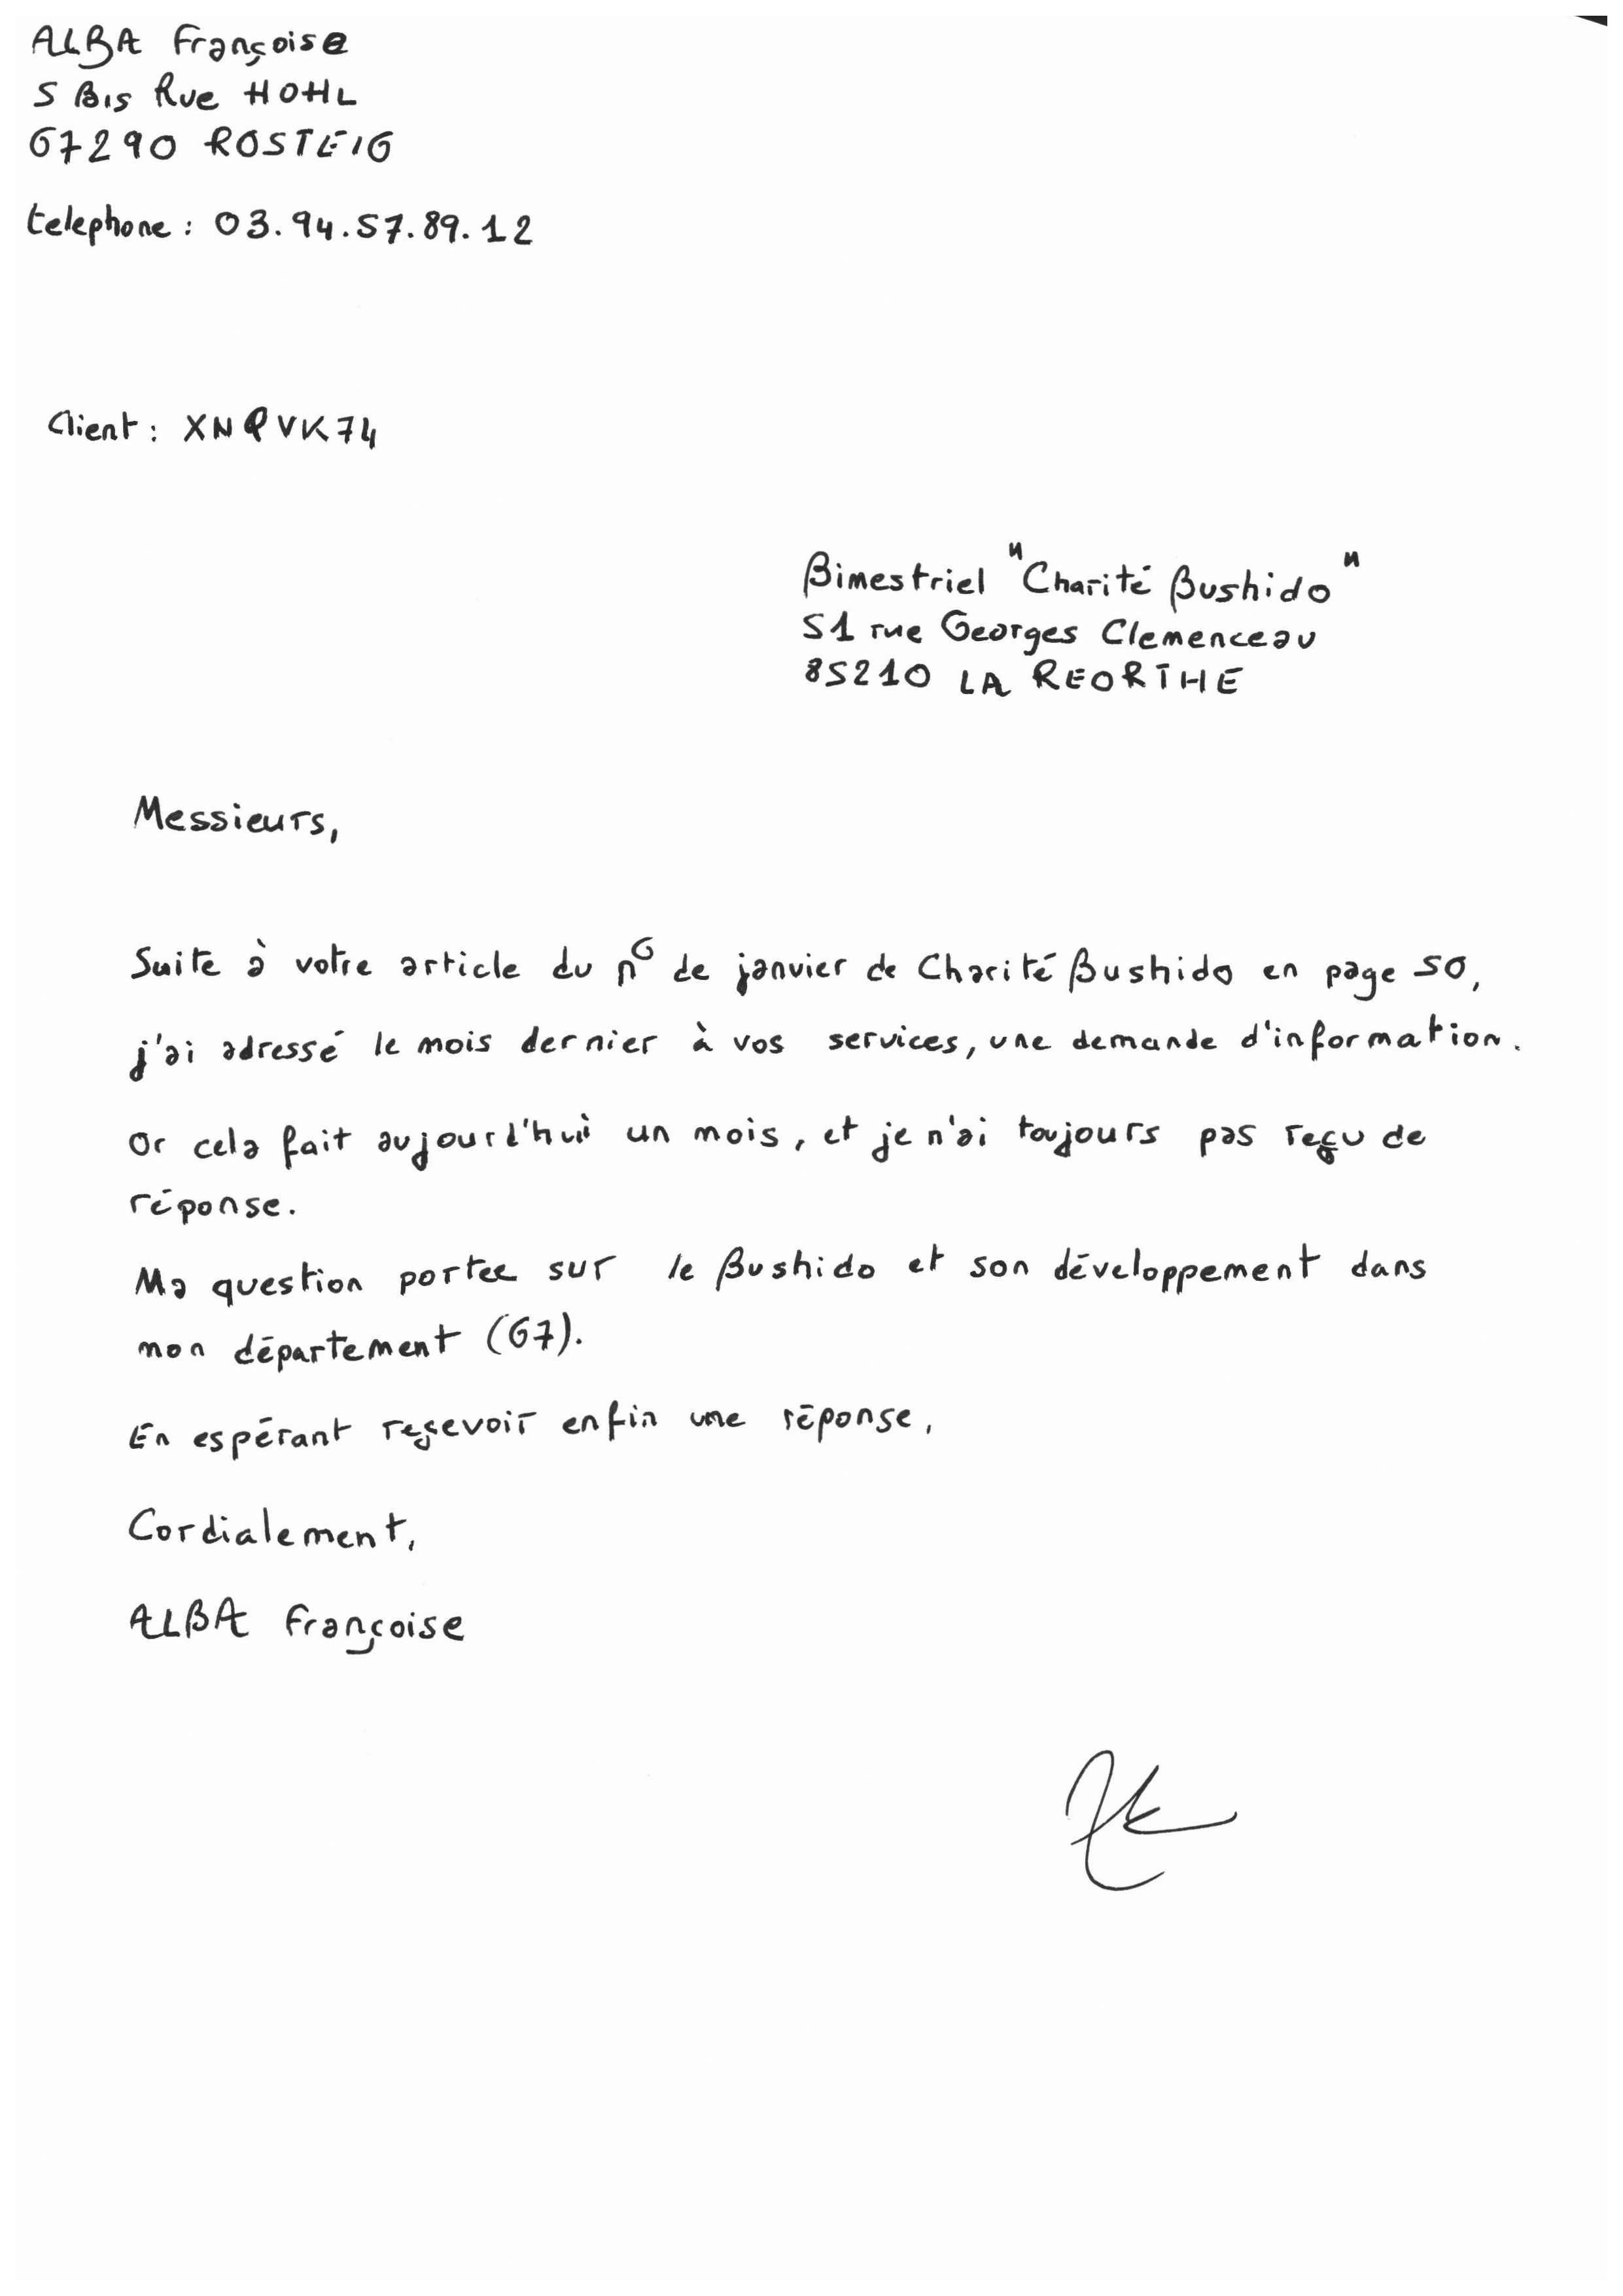 ALBA Françoise
5 Bis Rue HOHL
67290 ROSTEIG
telephone : 03.94.57.89.12
Client : XNQVK74
Bimestriel "Charité Bushido"
51 rue Georges Clemenceau
85210 LA REORTHE
Messieurs,
Suite à votre article du n° de janvier de Charité Bushido en page 50,
j'ai adressé le mois dernier à vos services, une demande d'information.
Or cela fait aujourd'hui un mois, et je n'ai toujours pas reçu de
réponse.
Ma question portee sur le Bushido et son développement dans
mon département (67).
En espérant reçevoir enfin une réponse,
Cordialement,
ALBA Françoise